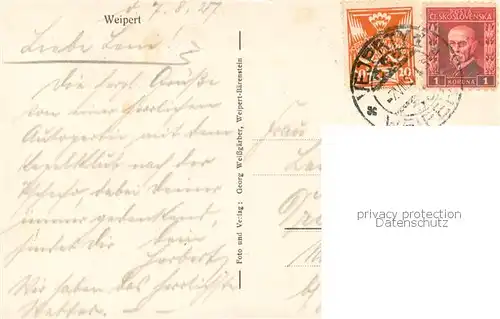 Weipert
d. 7. 8. 27
Liebe Leni!
Die herzl. Grüße
von einer herrlichen
Autopartie mit dem
nach der
dabei Deiner
immer gedenkend,
sendet Dir Dein
Herbert
Wir haben das herrlichste
Wetter.
Foto und Verlag: Georg Weißgärber, Weipert-Bärenstein
Frau
POŠTA
ČESKOSLOVENSKÁ
1 KORUNA 1
10
VEJPRTY
privacy protection
Datenschutz